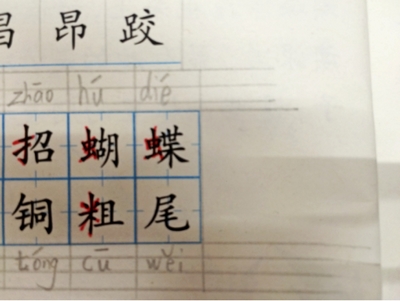 昌 昂 跤
zhāo hú dié
招 蝴 蝶
铜 粗 尾
tóng cū wěi